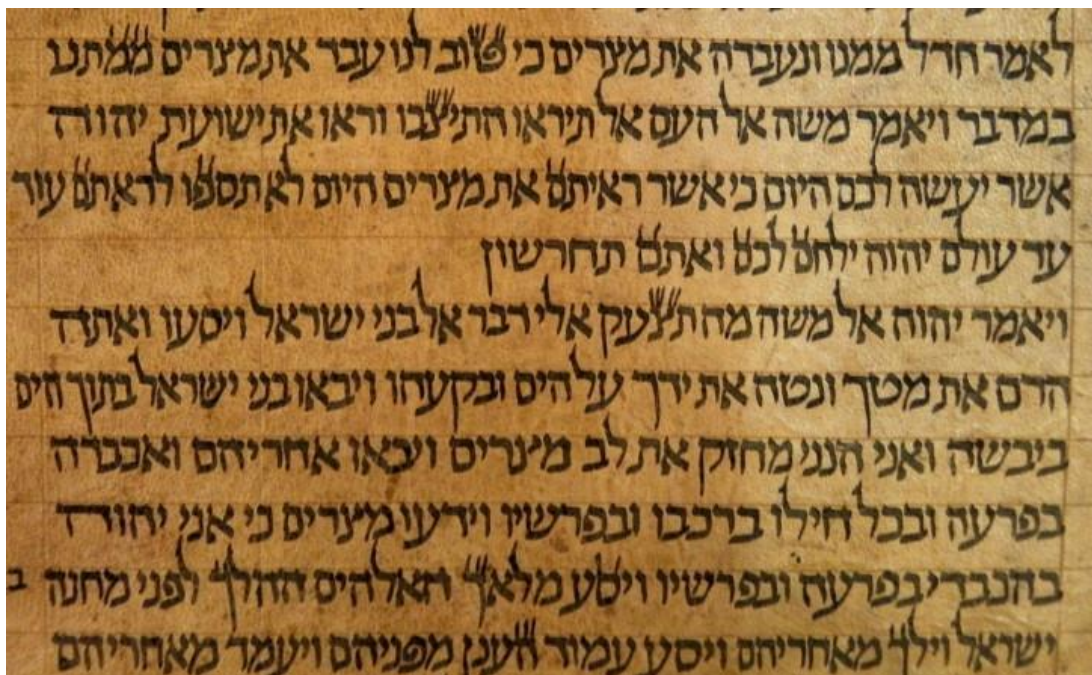 לאמר חדל ממנו ונעבדה את מצרים כי טוב לנו עבד את מצרים ממתנו
במדבר ויאמר משה אל העם אל תיראו התיצבו וראו את ישועת יהוה
אשר יעשה לכם היום כי אשר ראיתם את מצרים היום לא תספו לראתם עוד
עד עולם יהוה ילחם לכם ואתם תחרשון
ויאמר יהוה אל משה מה תצעק אלי דבר אל בני ישראל ויסעו ואתה
הרם את מטך ונטה את ידך על הים ובקעהו ויבאו בני ישראל בתוך הים
ביבשה ואני הנני מחזק את לב מצרים ויבאו אחריהם ואכבדה
בפרעה ובכל חילו ברכבו ובפרשיו וידעו מצרים כי אני יהוה
בהכבדי בפרעה ובפרשיו ויסע מלאך האלהים ההלך לפני מחנה ב
ישראל וילך מאחריהם ויסע עמוד הענן מפניהם ויעמד מאחריהם